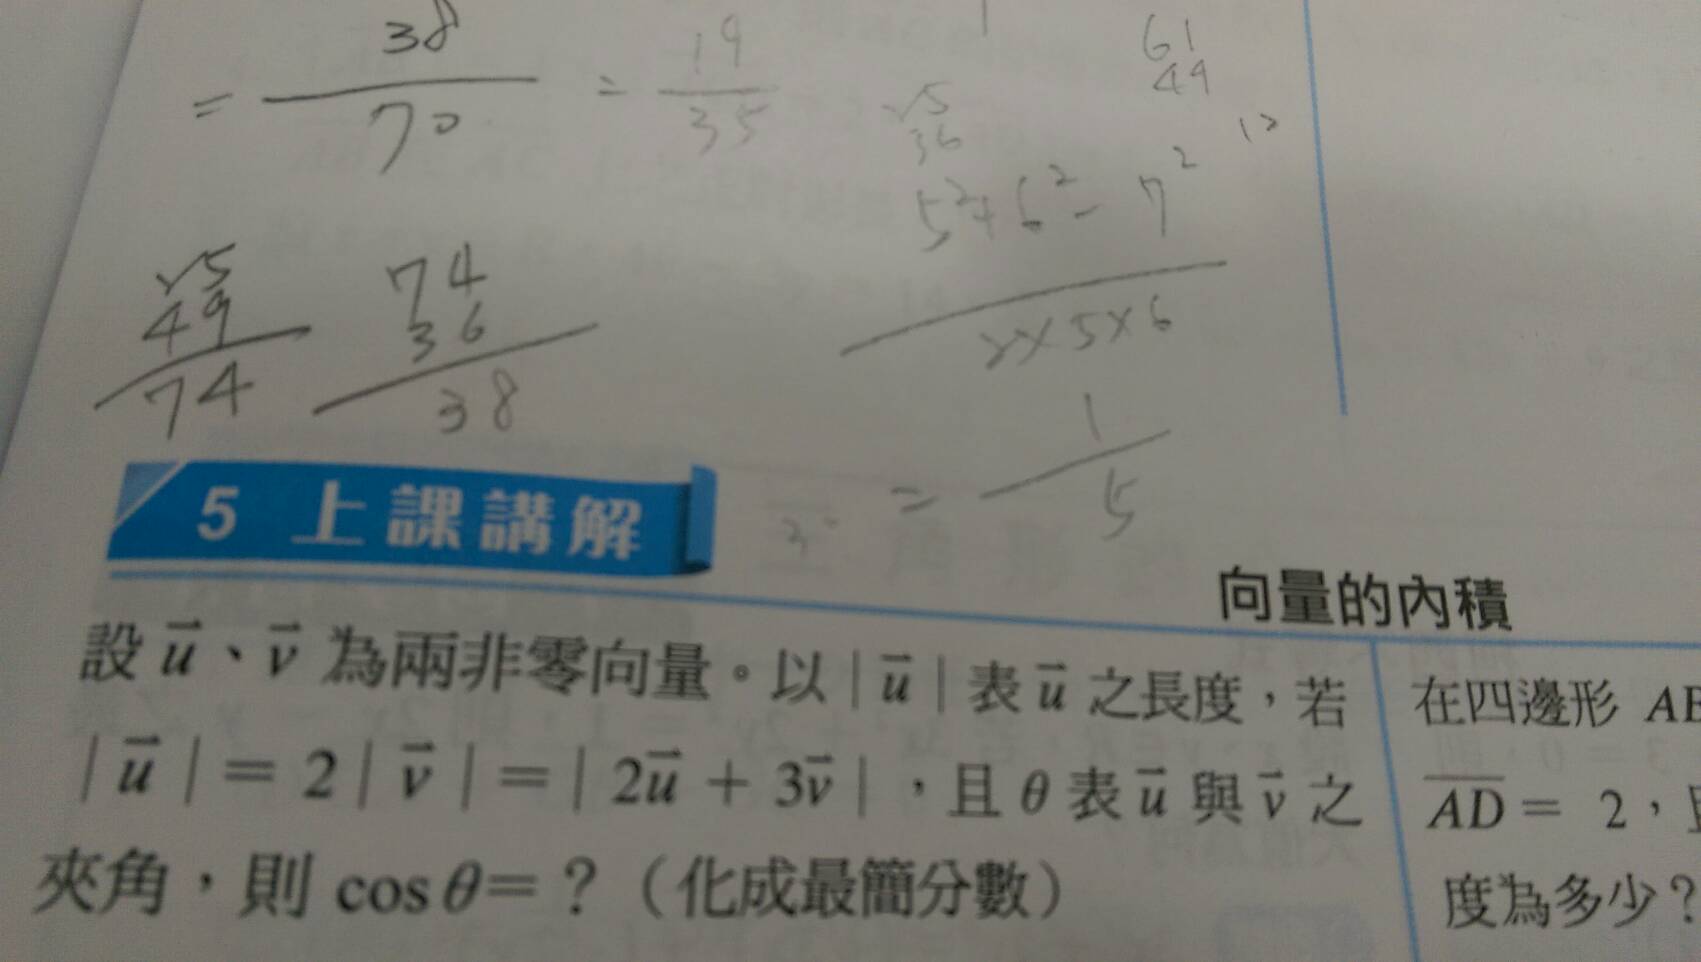 = 38/70 = 19/35
61
49
12
25
36
5²+6²-7²
2×5×6
= 1/5
25
49
74
74
36
38
5 上課講解
向量的內積
設 u⃗、v⃗ 為兩非零向量。以 | u⃗ | 表 u⃗ 之長度,若
| u⃗ | = 2 | v⃗ | = | 2u⃗ + 3v⃗ |,且 θ 表 u⃗ 與 v⃗ 之
夾角,則 cos θ=?(化成最簡分數)
在四邊形
AD = 2,
度為多少?